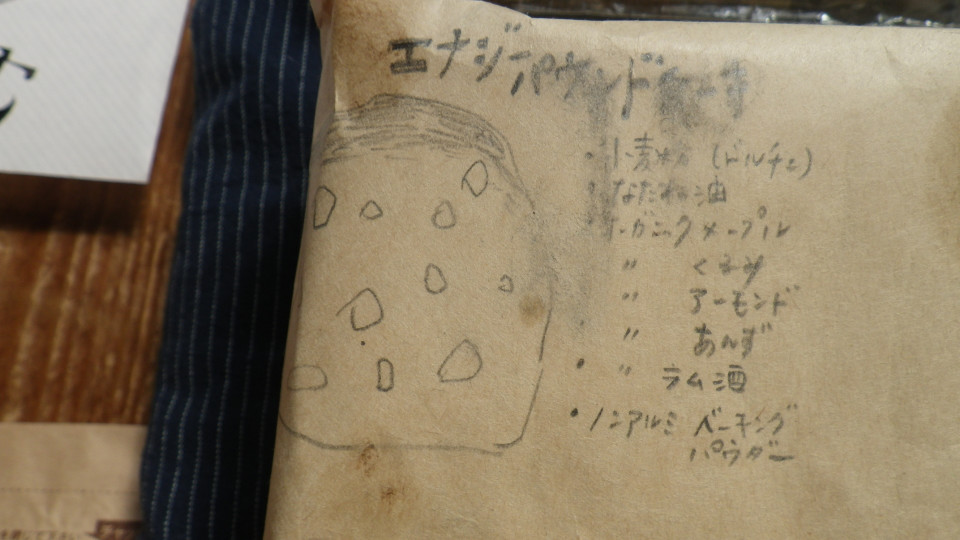 エナジーパウンドケーキ
・小麦粉 (ドルチェ)
・なたね油
・オーガニックメープル
〃 くるみ
〃 アーモンド
〃 あんず
・〃 ラム酒
・ノンアルミ ベーキング
パウダー